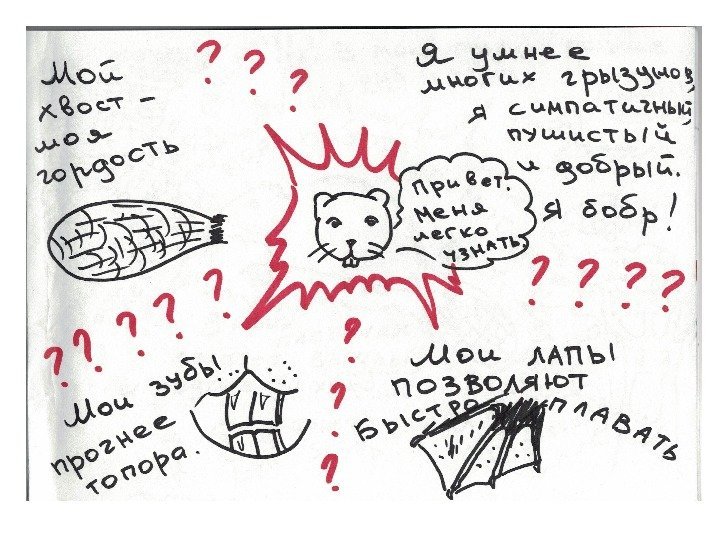 Мой
хвост –
моя
гордость
? ? ?
Я умнее
многих грызунов,
я симпатичный,
пушистый
и добрый.
Я бобр!
Привет.
Меня
легко
узнать
? ? ? ?
? ? ? ? ?
Мои зубы
прогнее
топора.
?
?
?
Мои лапы
позволяют
быстро плавать